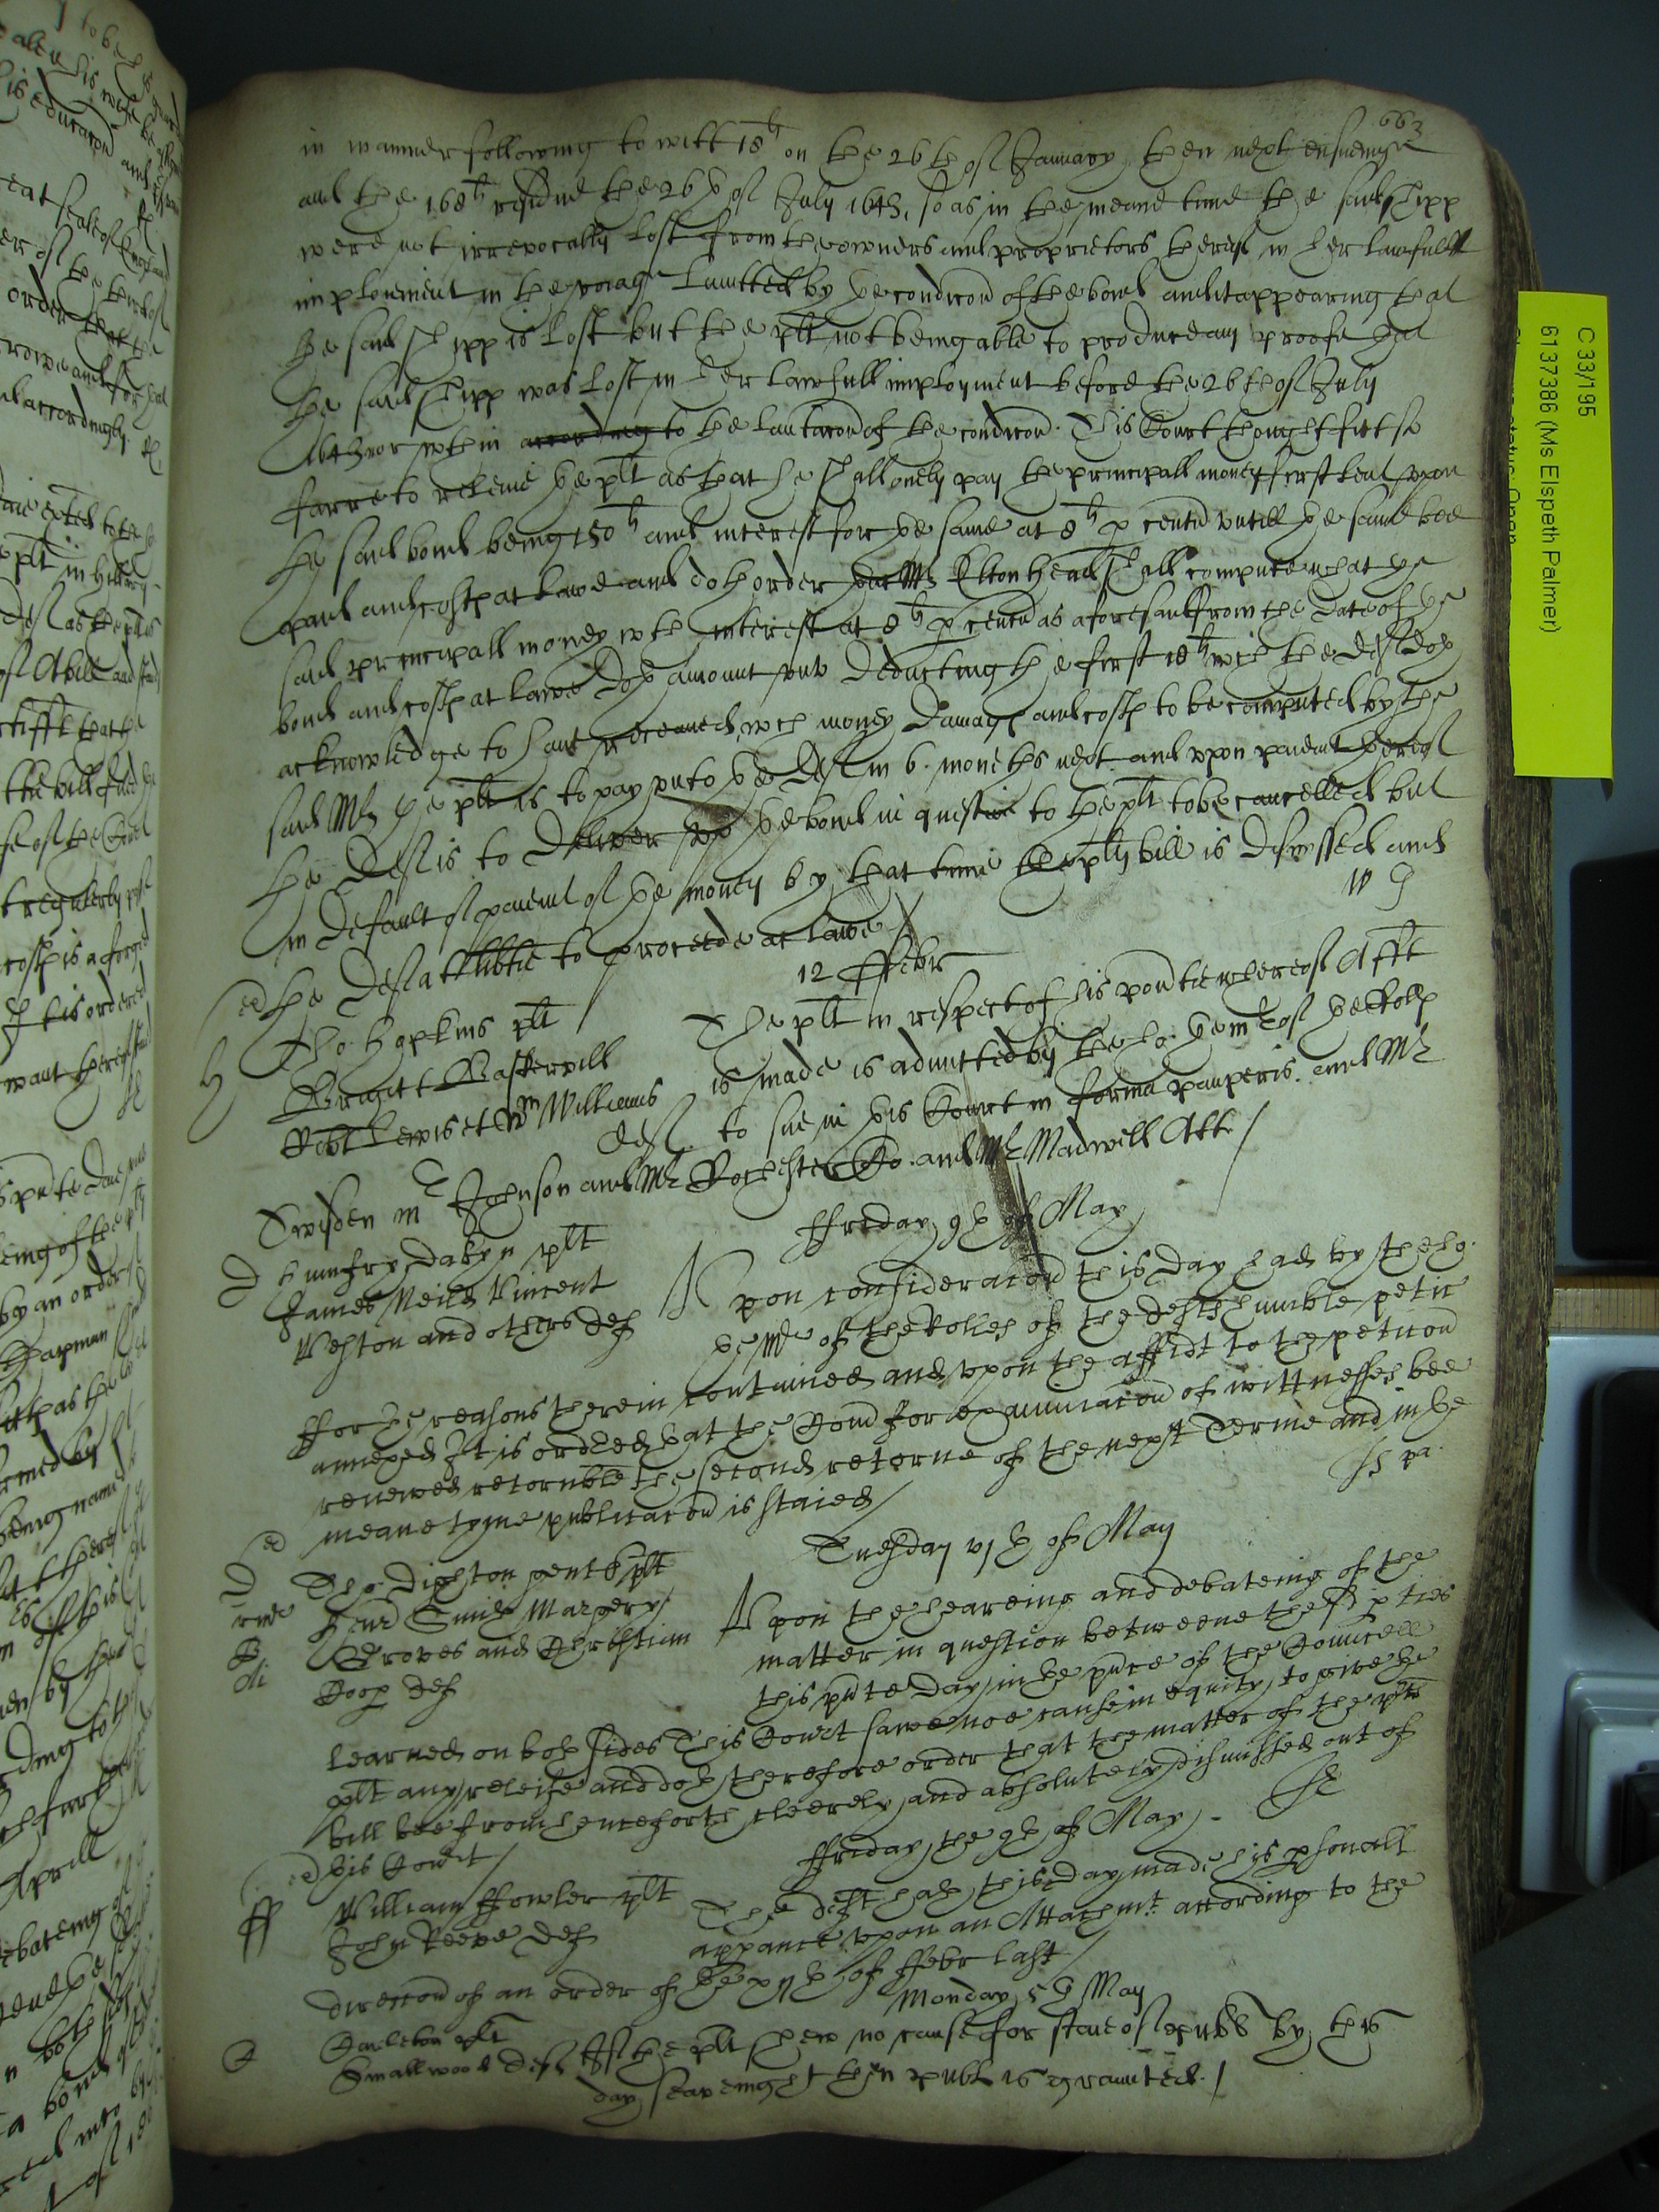 663
in manner following to witt 18li on the 26th of January then next ensueing
and the 168li residue the 26th of July 1643, so as in the meane time the said Shipp
were not irrevocally lost from the owners and proprietors thereof in her lawfull
imployment in the voiage lymitted by ye condicon of the bond and it appearing that
the said Shipp is lost but the plt not being able to produce any proofe yat
the said Shipp was lost in her lawfull imployment before the 26th of July
1643 nor wthin according to the limitacon of the condicon. This Court thought fitt so
farre to releive ye plt as that he shall onely pay the principall money first lent upon
the said bond being 150li and interest for ye same at 8li p centu untill ye same bee
paid and costs at lawe and doth order yat Mr Eltonhead shall compute what ye
said principall money wth interest at 8li p centu as aforesaid from the date of ye
bond and costs at lawe doth amount unto deducting the first 18li wch the deft doth
acknowledge to have receaved, wch money damages and costs to be computed by the
said Mr ye plt is to pay unto ye deft in 6. moneths next and upon paiemt thereof
the deft is to deliver upp ye bond in question to the plt to be cancelled but
in default of paiemt of ye money by that time the plts bill is dismissed and
the deft att libtie to proceede at lawe /
12 ffebr
Tho: Hopkins plt
Bridgitt Baskervill
Robt Lewis et Wm Williams
deft
The plt in respect of his povertie whereof Afft
is made is admitted by the Ho: ye mr of ye Rolls
to sue in this Court in forma pauperis. and Mr
Johnson and Mr Rochester Co. and Mr Madwell Att. /
ffriday 9th of May
D
Humfry Dakyn plt
James Neild Vincent
Weston and others defts
Upon consideracon this day had by the ho:
ye Mr of the Rolles of the defts humble peticon
ffor the reasons therein contained and upon the affidt to the peticon
annexed It is ordered yat the Comd for examinacon of wittnesses bee
renewed retornble the second retorne of the next Terme and in ye
meane tyme publicacon is staied /
Tuesday vjth of May
D
Tho: Dighton gent plt
Smith Margery
Groves and Christian
Coop defts
Upon the heareing and debateing of the
matter in question betweene the sd pties
this pnte day in ye pnce of the Councell
learned on both sides This Court sawe noe cause in equity to give ye
plt any releife and doth therefore order that the matter of the plts
bill bee from henceforth cleerely and absolutely dismissed out of
this Court /
ffriday the 9th of May
ff
William ffowler plt
John Reeve deft
The deft hath this day made his psonall
appance upon an Attachmt according to the
direccon of an order of ye xijth of ffebr last /
Monday 5th May
Carleton plt
Smallwood deft
If the plt shew no cause for staie of publ by this
day seavenight then publ is graunted. /
C 33/195
6137386 (Ms Elspeth Palmer)